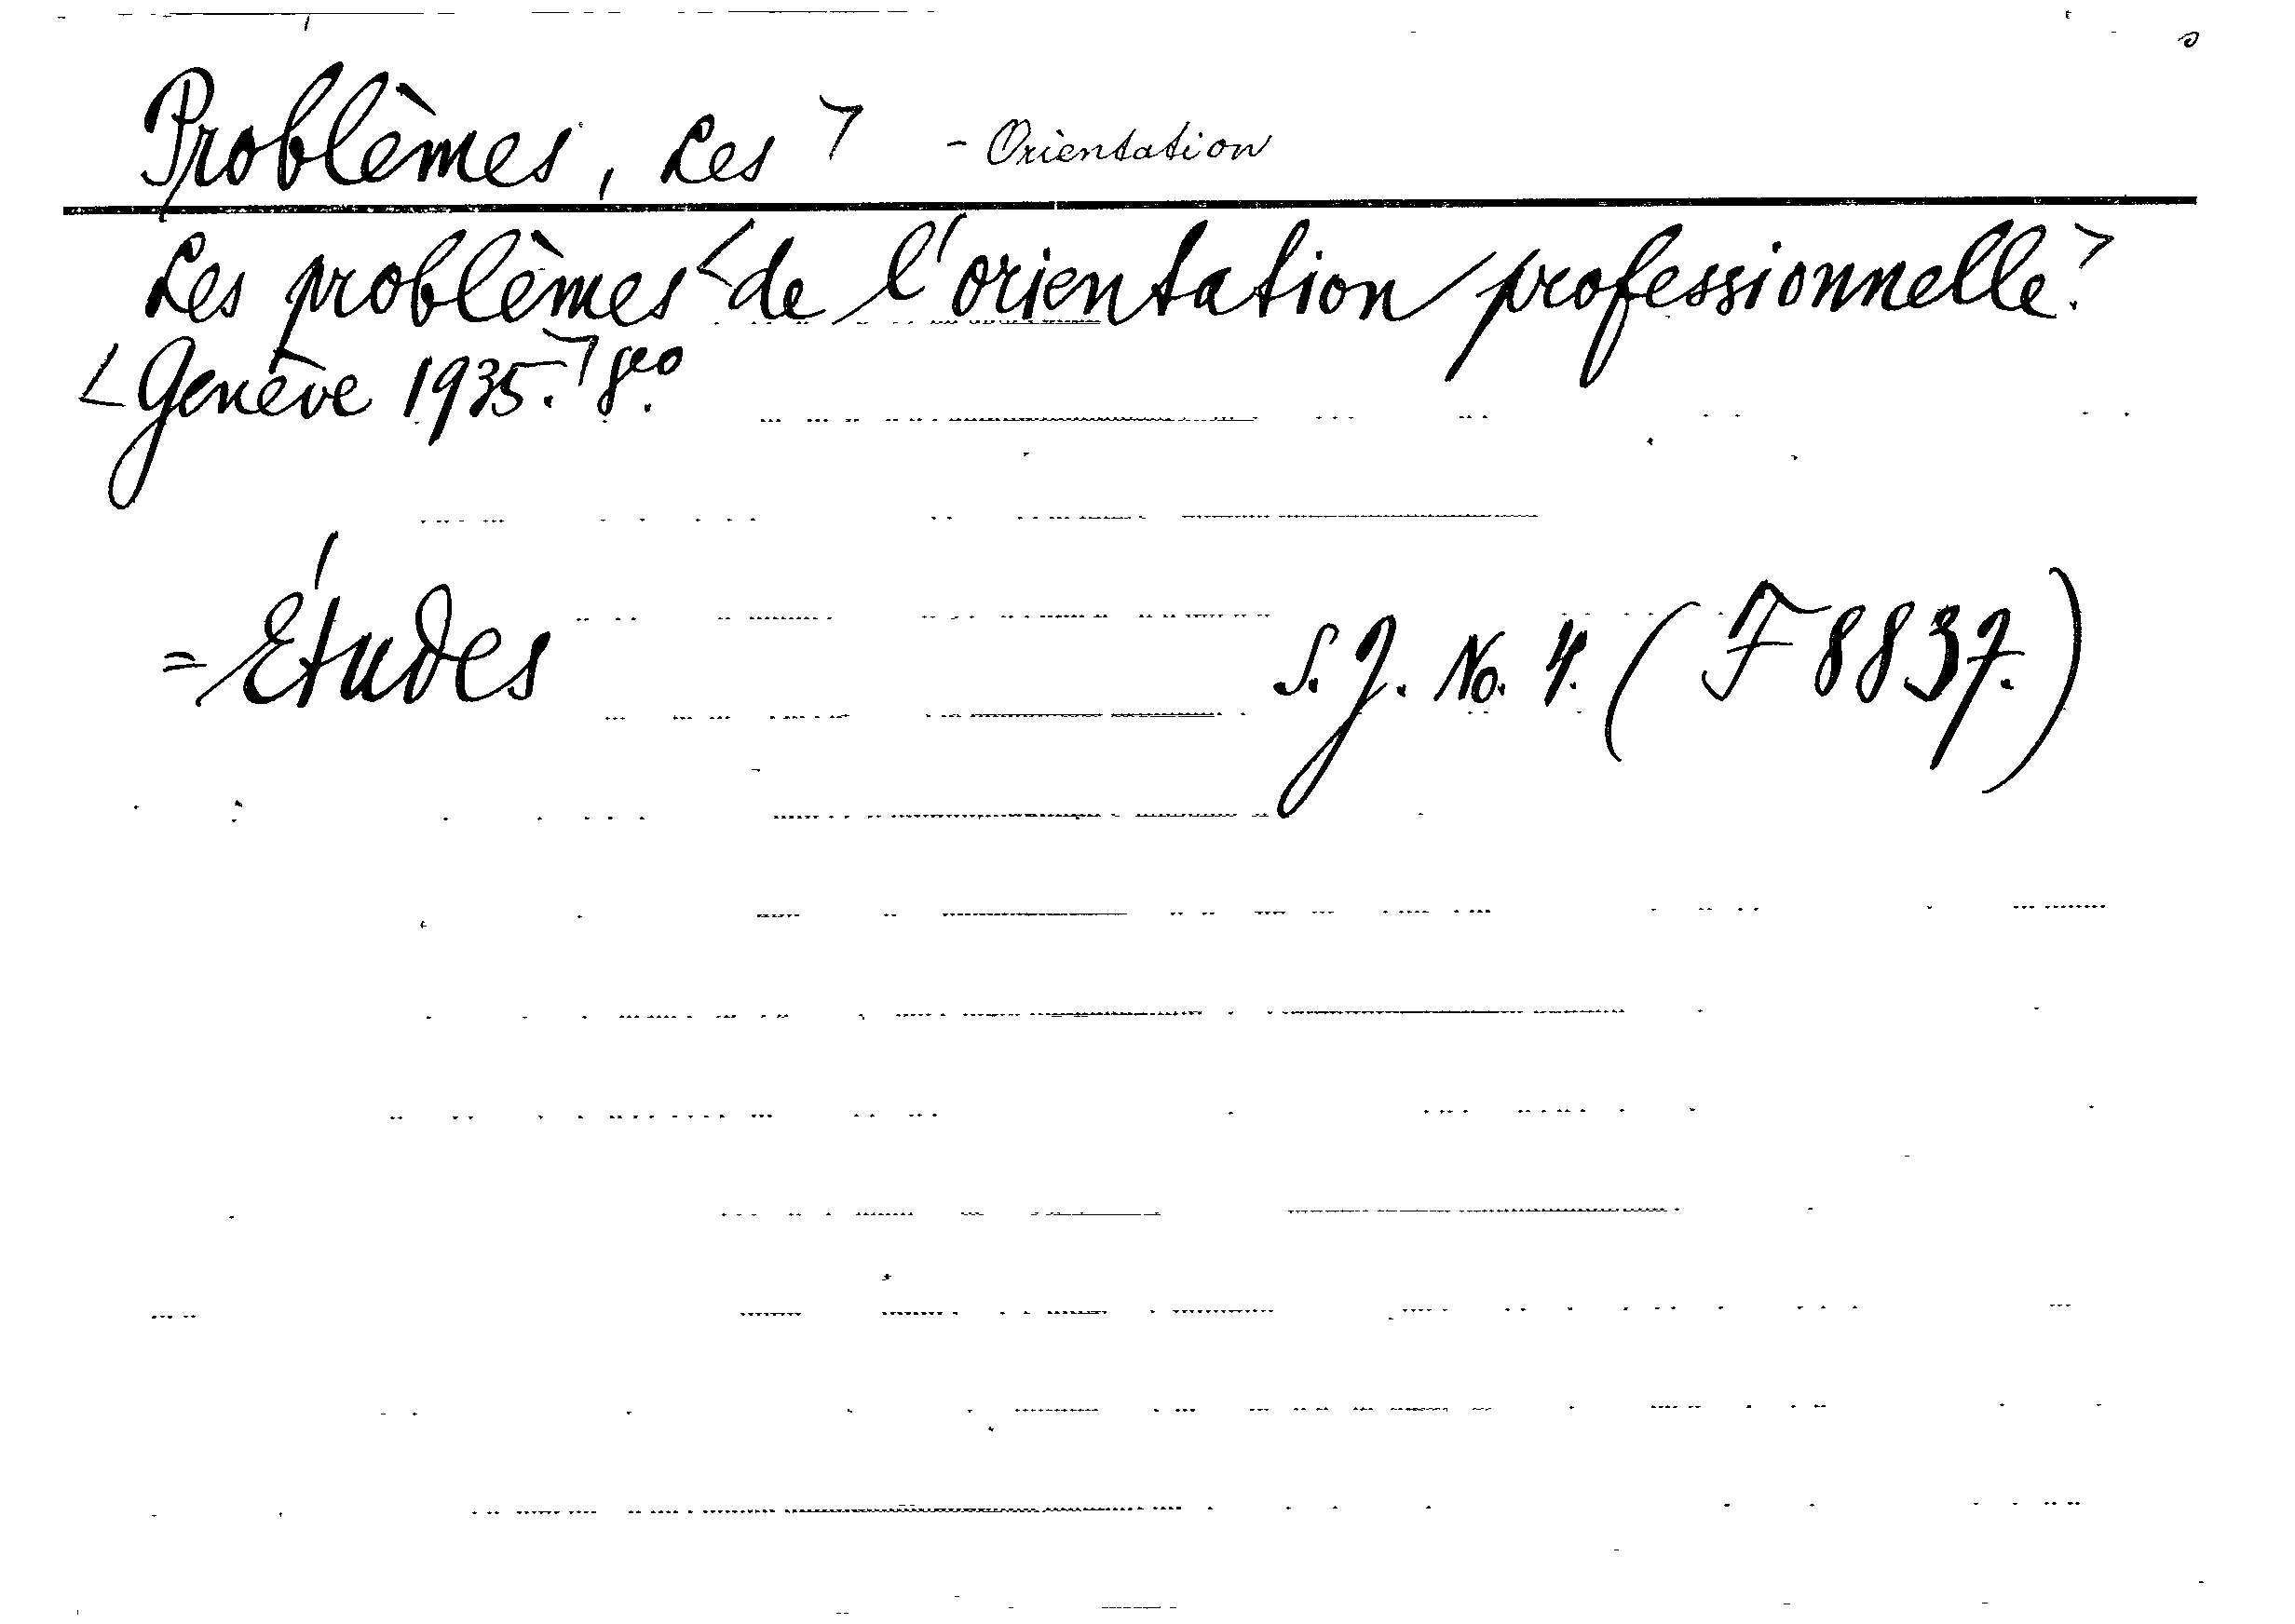 Problèmes, Les > - Orientation
Les problèmes < de l'orientation professionnelle. >
< Genève 1935. > 8eo.
= Études S. J. No. 4. (F 8837.)